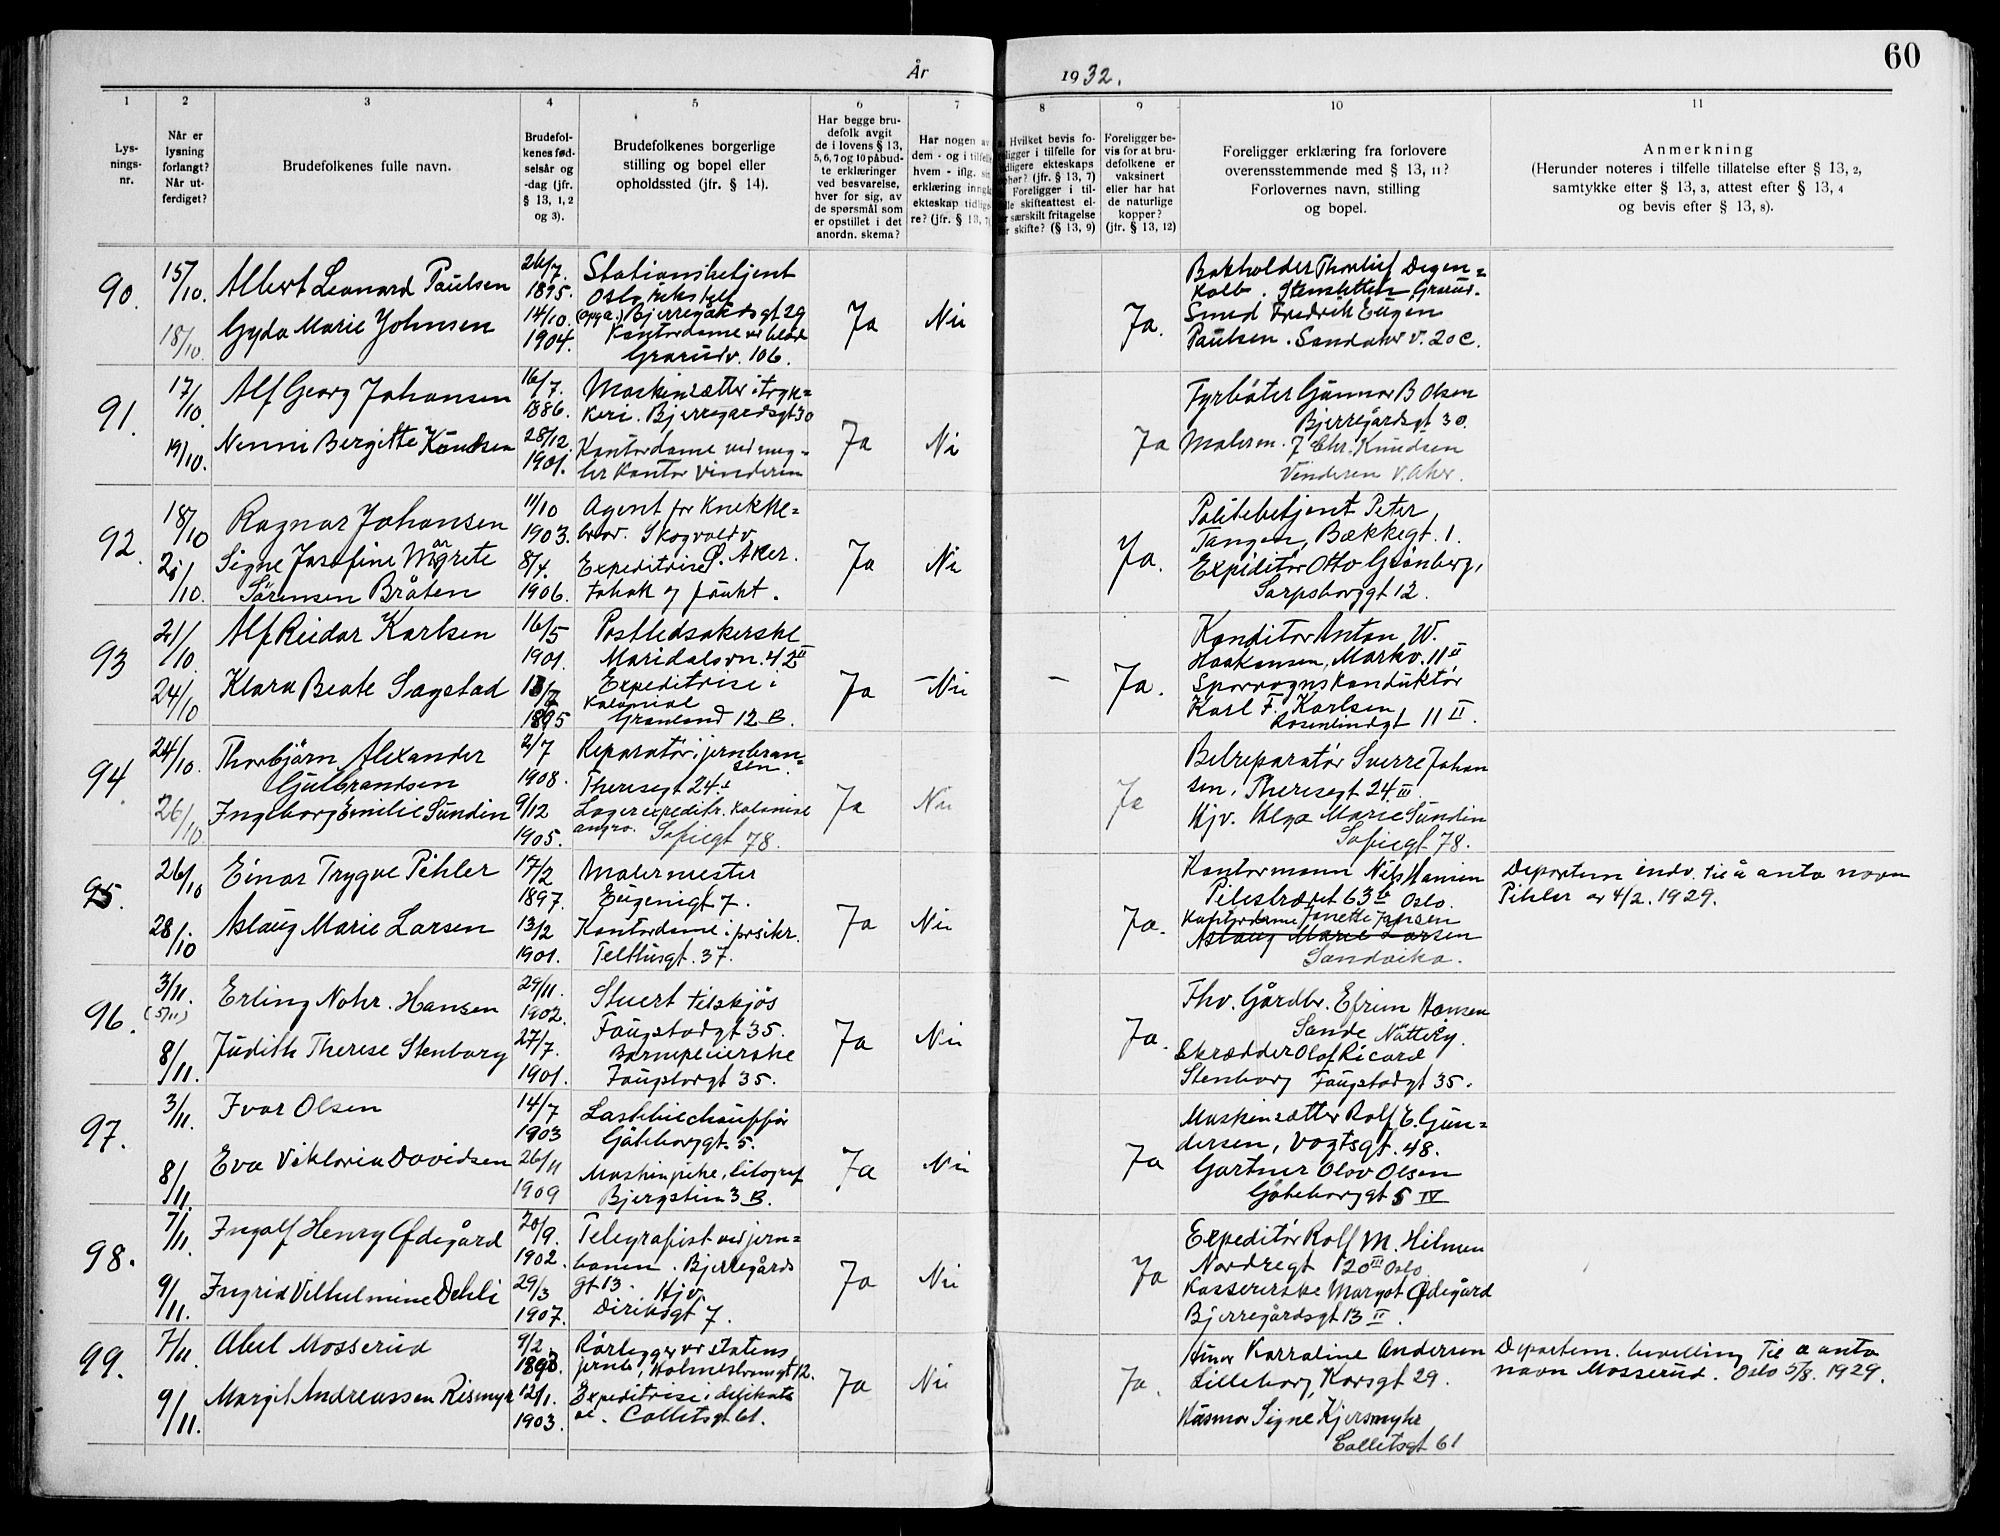 60
År 1932.
1 2 3 4 5 6 7 8 9 10 11
Lys-
nings-
nr.
Når er
lysning
forlangt?
Når ut-
ferdiget?
Brudefolkenes fulle navn.
Brudefol-
kenes fød-
selsår og
-dag (jfr.
§ 13, 1, 2
og 3).
Brudefolkenes borgerlige
stilling og bopel eller
opholdssted (jfr. § 14).
Har begge bru-
defolk avgit
de i lovens § 13,
5, 6, 7 og 10 påbud-
te erklæringer
ved besvarelse,
hver for sig, av
de spørsmål som
er opstillet i det
anordn. skema?
Har nogen av
dem - og i tilfelle
hvem - iflg. sin
erklæring inngå
ekteskap tidlige
re? (jfr. § 13, 7)
Hvilket bevis fo-
religger i tilfelle for
tidligere ekteskaps
ophør? (jfr. § 13, 7)
Foreligger i til-
felle skifteattest el-
er særskilt fritagelse
for skifte? (§ 13, 9)
Foreligger be-
vis for at bru-
defolkene er
vaksinert
eller har hat
de naturlige
kopper?
(jfr. § 13, 12)
Foreligger erklæring fra forlovere
overensstemmende med § 13, 11?
Forlovernes navn, stilling
og bopel.
Anmerkning
(Herunder noteres i tilfelle tillatelse efter § 13, 2,
samtykke efter § 13, 3, attest efter § 13, 4
og bevis efter § 13, 8).
90.
15/10.
18/10.
Albert Leonard Paulsen
Gyda Marie Johnsen
26/7.
1895.
14/10.
1904.
Stationsbetjent
Oslo
Bjerregårdsgt 29
Kontordame
Grorudv. 106.
Ja
Nei
Ja.
Thorleif Degen=
kolb. Grorud.
Smed Fredrik Eugen
Paulsen. Sandaker v. 20 C.
91.
17/10.
19/10.
Alf Georg Johansen
Nenni Bergitte Knudsen
16/7.
1886.
28/12.
1901.
Maskinsætter i tryk=
keri. Bjerregardsgt 30
Kontordame ved meg=
ler kontor Vinderen
Ja
Nei
Ja
Fyrbøter Gunnar B Olsen
Bjerregårdsgt 30.
Malerm. J Chr. Knudsen
Vinderen V. Aker.
92.
18/10
21/10.
Ragnar Johansen
Signe Josefine Margrete
Sørensen Bråten
11/10
1903.
8/4.
1906.
Agent for Knekke=
brød. Skogvoldv.
Ø. Aker.
Expeditrise
Tobak og frukt.
Ja
Nei
Ja.
Politibetjent Peter
Tangen, Bækkegt. 1.
Expeditør Otto Grønberg,
Sarpsborggt 12.
93
21/10.
24/10
Alf Reidar Karlsen
Klara Beate Sagstad
16/5
1901.
1895
Postbedsakerske
Maridalsvn. 42 II
Expeditrise i
Kolonial
Grønland 12 B.
Ja
– Nei
–
Ja.
Konditor Anton W.
Haakonsen, Markv. 11 II
Sporvogns konduktør
Karl F. Karlsen
Rosenlundgt 11 II.
94.
24/10.
26/10
Thorbjørn Alexander
Gulbrandsen
Ingeborg Emilie Sundin
2/7
1908.
9/12
1905.
Reparatør i jernbran=
sen.
Theresegt 24.
Lagerexpeditr. Kolonial
angro. Sofiegt 78.
Ja
Nei
Ja
Belreparatør Sverre Johan
sen, Theresegt 24 III
Hjv. Helga Marie Sundin
Sofiegt 78.
95.
26/10
28/10
Einar Trygve Pihler
Aslaug Marie Larsen
17/2
1897.
13/2
1901.
Malermester
Eugenigt 7.
Kontordame i forsikr.
Telthusgt. 37.
Ja
Nei
Ja.
Kontormann Nils Hansen
Pilestrædet 63 b Oslo.
Kontordame Janette Jansen
Aslaug Marie Larsen
Sandvika.
Departem. indv. til å anta navn
Pihler av 4/2. 1929.
96.
3/11.
(5/11)
8/11.
Erling Nohr. Hansen
Judith Therese Stenborg
29/11.
1902.
27/7.
1901.
Stuert tilsjøs
Faugstadgt 35.
Barnepleierske
Faugstadgt 35.
Ja
Nei
Ja.
Fhv. Gårdbr. Efrim Hansen
Sande Nøtterøy.
Skrædder Olof Ricard
Stenborg Faugstadgt 35.
97.
3/11.
8/11.
Ivar Olsen
Eva Viktoria Davidsen
14/7
1903
26/11
1909
Lastebilchauffør
Gøteborggt. 5.
Maskinpike, litograf
Bjergstien 3 B.
Ja
Nei
Ja
Maskinsætter Rolf E. Gun=
dersen, Vogtsgt. 48.
Gartner Olov Olsen
Gøteborggt 5 IV
98.
7/11.
9/11.
Ingolf Henry Ødegård
Ingrid Vilhelmine Dehli
20/9.
1902.
29/3
1907.
Telegrafist ved jern=
banen. Bjerregårds
gt 13. Hjv.
Diriksgt 7.
Ja
Nei
Ja
Expeditør Rolf M. Hilmen
Nordregt 20 III Oslo
Kassererske Margot Ødegård
Bjerregårdsgt 13 II.
99.
7/11.
9/11.
Abel Mosserud
Margit Andreassen Rismyr
9/2.
1893.
12/1.
1903.
Rørlegger ve statens
jernb., Holmestransgt 12.
Expeditrise i delikate
se. Colletsgt 61.
Ja
Nei
Ja.
Karraline Andersen
Lilleborg, Korsgt 29.
Husmor Signe Kjersmyhr
Colletsgt 61
Departem. bevilling til å anta
navn Mosserud. Oslo 5/8. 1929.